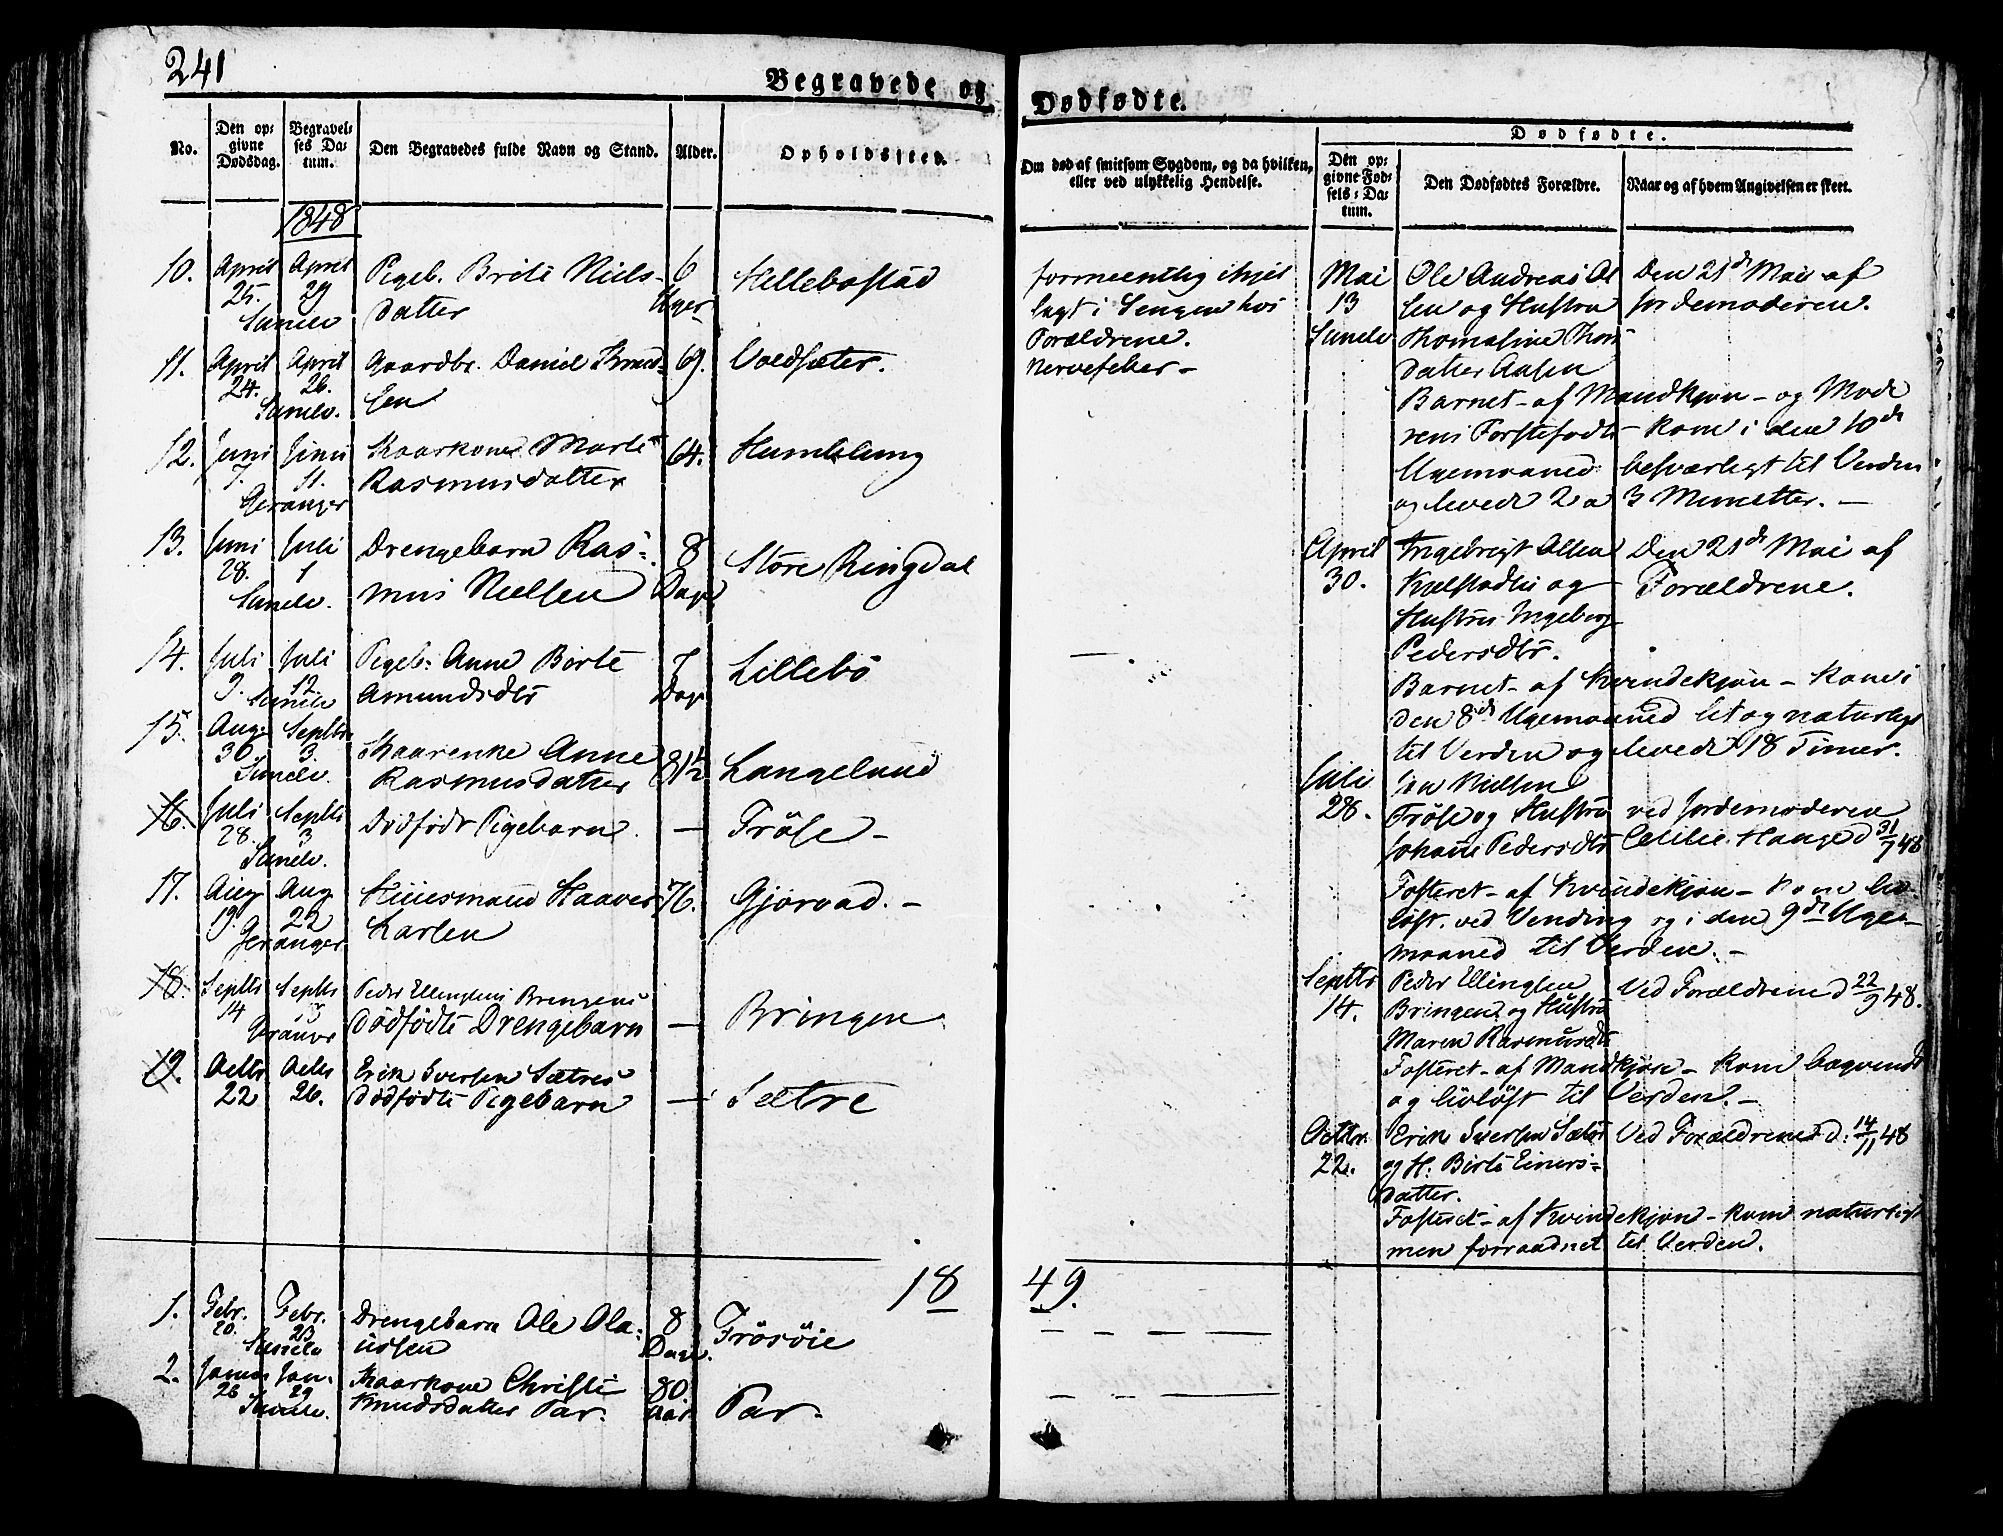 241
Begravede og
Dødfødte.
No.
Den op=
givne
Dødsdag.
Begravel=
ses Da=
tum.
Den Begravedes fulde Navn og Stand.
Alder.
Opholdssted.
Om død af smitsom Sygdom, og da hvilken,
eller ved ulykkelig Hendelse.
Dødfødte.
Den op=
givne Fød=
sels=Da=
tum.
Den Dødfødtes Forældre.
Naar og af hvem Angivelsen er skeet.
1848
10. April April Pigeb. Brite Niels- 6 Hellebostad
25. 29 datter Uger
Sunelv
11. April April Gaardbr. Daniel Knud- 69. Voldsæter.
24. 26. sen
Sunelv.
12. Juni Juni Kaarkone Marte 64. Humlelung
7. 11. Rasmusdatter
Geranger
13. Juni Juli Drengebarn Ras= 8 Store Ringdal
28. 1 mus Nielsen Dage
Sunelv.
14. Juli Juli Pigeb: Anne Berte 7 Lillebö
9. 12. Amundsdtr Dage
Sunelv
15. Aug: Septbr Kaarenke Anne 81½ Langelund
30 3. Rasmusdatter
Sunelv.
16. Juli Septbr Dödfödt Pigebarn. — Fröse —
28. 3
Sunelv.
17. Aug Aug Huusmand Haaver 76. Gjørvad. —
19. 22 Larsen
Geranger
18. Septbr Septbr Peder Ellingsens Bringens
14 Dödfödte Drengebarn — Bringen
Geranger
19. Octbr Octbr Erik Iversen Sætres
22 26. Dödfödte Pigebarn — Sætre
formeentlig ihjel
lagt i Sengen hos
Forældrene.
Nervefeber —
Mai Ole Andreas Ol Den 21de Mai af
13 sen og Hustru Jordemoderen.
Sunelv Thomasine Thors
datter Aasen
Barnet - af Mandkjøn - og Mode
rens Førstefødte - kom i den 10de
Ugemaaned besværligt til Verden
og levede 2 a 3 Minutter. —
April Ingebrigt Olsen Den 21de Mai af
30. og Forældrene.
Hustru Ingeborg
Pedersdtr.
Barnet - af Kvindekjøn - kom i
den 8de Ugemaaned let og naturligt
til Verden og levede 18 Timer.
Juli Nielsen
28. Fröse og Hustru ved Jordemoderen
Johanne Pedersdtr Cecilie Hauge d 31/7 48
Fosteret - af Kvindekjøn - kom liv=
löst. ved Vending og i den 9de Uge-
maaned til Verden. —
Septbr Peder Ellingsen Ved Forældrene d 22/9 48.
14. Bringen og Hustru
Maren Rasmusdtr
Fosteret - af Mandkjøn - kom bagvendt
og livlöst til Verden. —
Octbr. Erik Iversen Sætre Ved Forældrene d. 14/11 48
22. og H. Birte Einers=
datter.
Fosteret - af Kvindekjøn - kom naturligt
men forraadnet til Verden.
1849.
1. Febr. Febr. Drengebarn Ole Ola= 8 Frösöie — — —
20. 23 ussen Dage.
Sunelv
2. Januar Jan. Kaarkone Christi 80. Par. — — —
26 29 Knudsdatter Par. Aar
Sunelv.